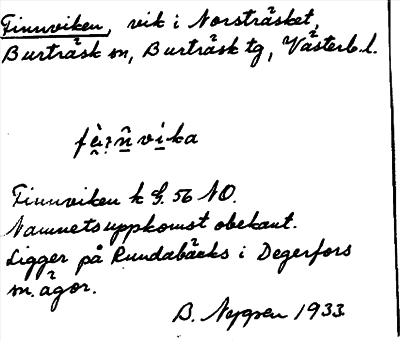 Finnviken, vik i Norsträsket,
Burträsk sn, Burträsk tg, Västerb. l.
Finnviken k G. 56 NO.
Namnets uppkomst obekant.
Ligger på Rundabäcks i Degerfors
sn. ägor.
B. Nygren 1933.